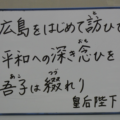 広島をはじめて訪ひ
平和への深き念ひを
吾子は綴れり
皇后陛下